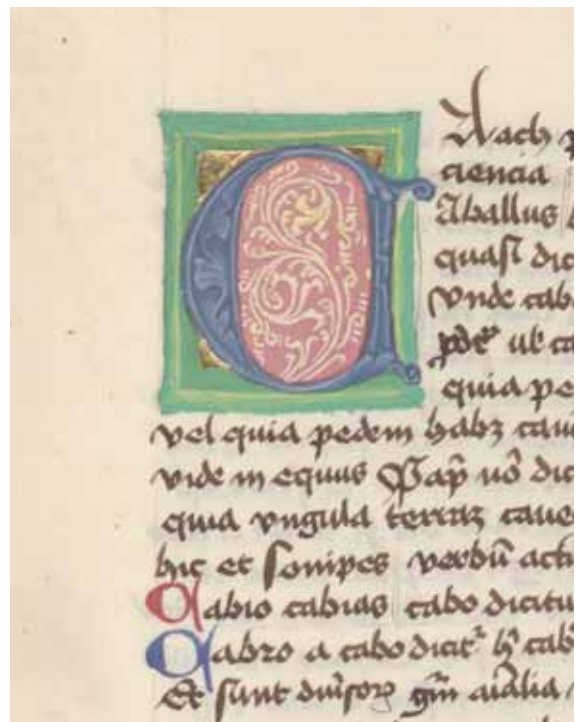 Aach p
ciencia
Aballus
quasi dic
vnde cabo
ub ca
quia pe
vel quia pedem habꝫ cau
vide in equus Pap̄ uō dic
quia vngula terraꝫ caue
hic et sonipes verbū acti
Cabio cabias cabo dicitu
Cabro a cabo dicit᷑ h̄ cab
Et sunt diuſoꝝ gn̄m aīalia